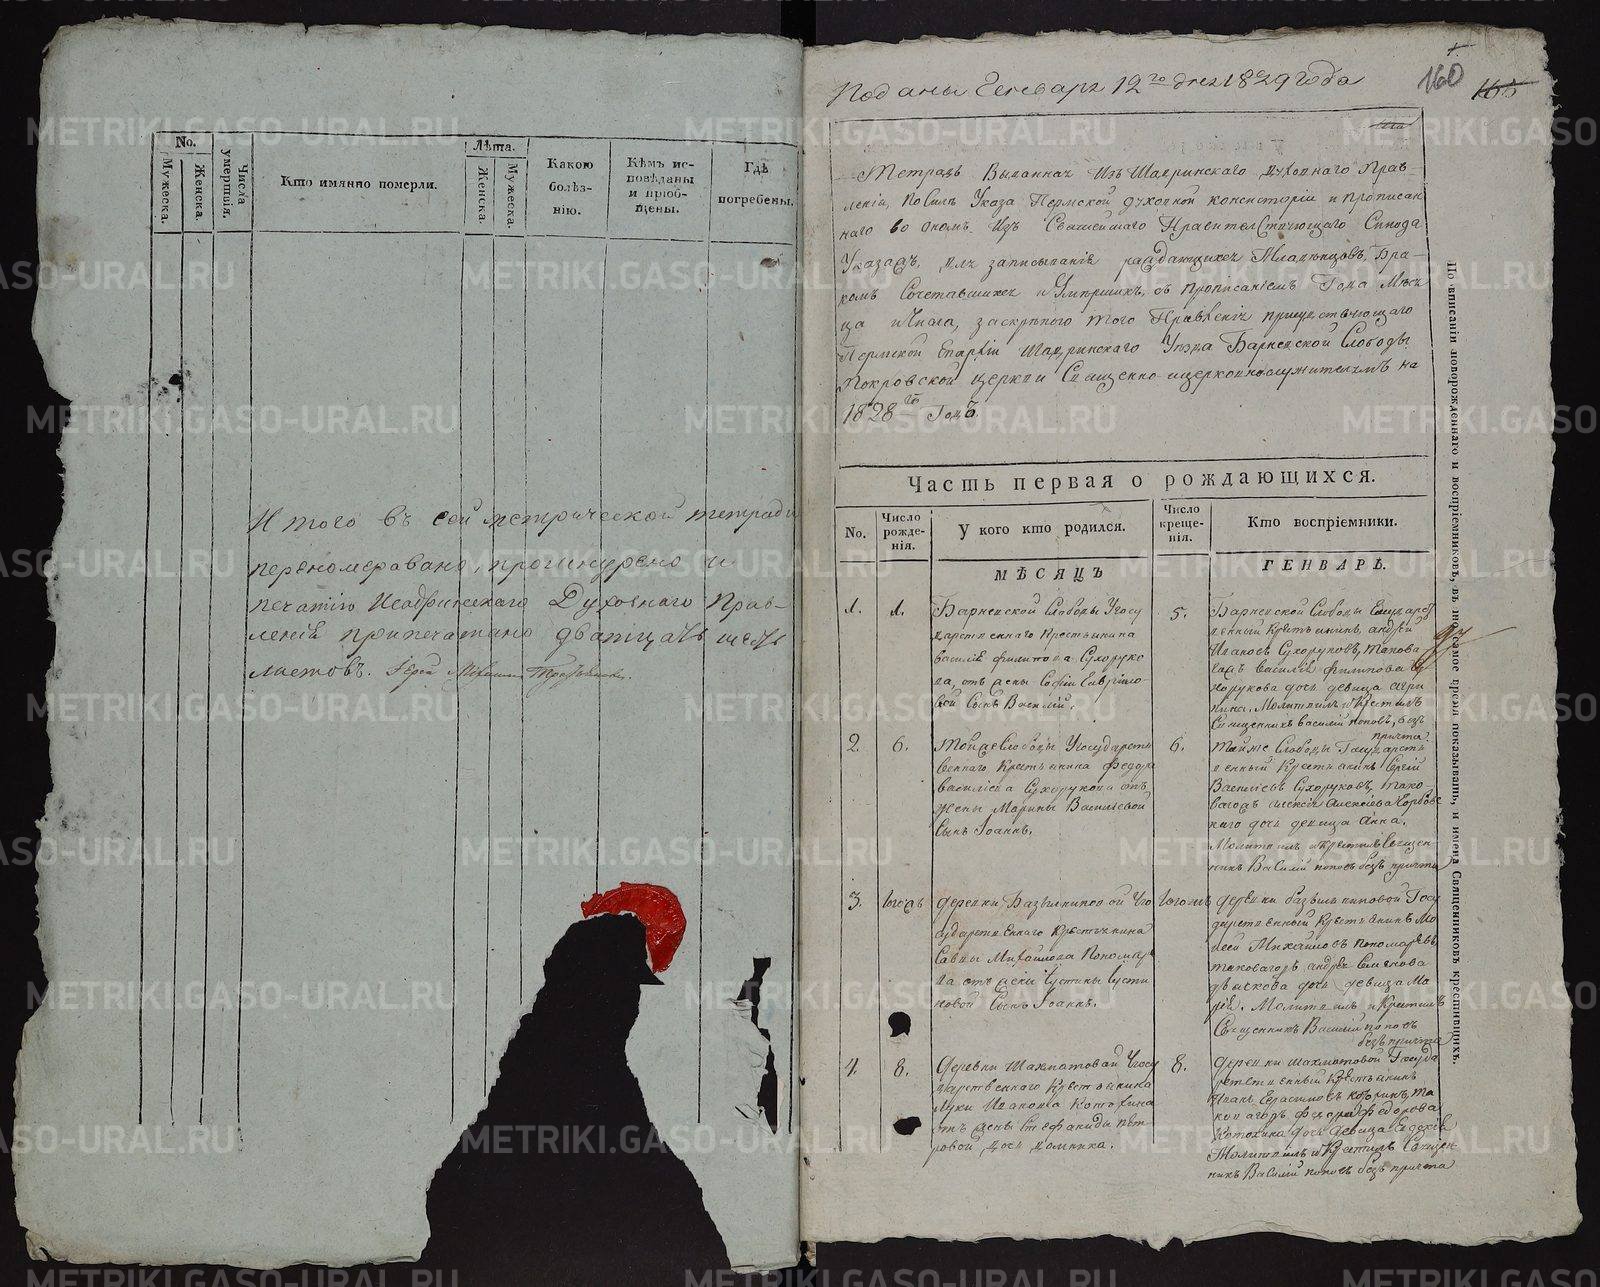 No.
Мужеска.
Женска.
Числа умершія.
Кто имянно померли.
Лѣта.
Женска.
Мужеска.
Какою
болѣз-
нію.
Кѣмъ ис-
повѣданы
и пріоб-
щены.
Гдѣ
погребены.
Итого въ сей метрической тетради
перенумеровано, прошнурено и
печатію Шадринскаго Духовнаго Прав-
ленія припечатано дватцать шесть
листовъ. Іерей Михаилъ
Поданы Генваря 12го дня 1829 года
160
Тетрадь Выданная Изъ Шадринскаго духовнаго Прав-
ленія, По Силѣ Указа Пермской духовной консисторіи и прописан
наго во ономъ Изъ Святейшаго Правителствующаго Синода
Указадъ, для записыванія раждающихся Младенцовъ, Бра-
комъ Сочетавшихся и Умершихъ, съ прописаніемъ Года Меся
ца и Числа, за скрепою того Правленія присудствующаго
Пермской Епархіи Шадринскаго Уезда Барневской Слободы
Покровской церкви Священно-ицерковнослужителямъ на
1828й Годъ.
Часть первая о рождающихся.
No.
Число
рожде-
нія.
У кого кто родился.
Число
креще-
нія.
Кто воспріемники.
МѢСЯЦЪ
ГЕНВАРЬ.
1.
1.
Барневской Слободы Угосу
дарственнаго Крестьянина
василія филипова Сухоруко
ва, отъ жены Софіи Гаврило-
вой Сынъ Василій.
5.
Барневской Слободы Государст
венный Крестьянинъ андрей
Ивановъ Сухоруковъ, такова
гожъ василія филипова Су
хорукова дочь девица агри
пина. Молитвилъ и Крестилъ
Священникъ василій поповъ, безъ
причта.
2.
6.
Тойже Слободы Угосударст
веннаго Крестьянина федора
василіева Сухорукова отъ
жены Марины Васильевой
Сынъ Іоаннъ.
6.
Тойже Слободы Государст
венный Крестьянинъ Сергій
Васильевъ Сухоруковъ, тако-
вагожъ алексія алексіева
дочь девица анна.
Молитвилъ и Крестилъ Священ
никъ Василій поповъ безъ причта
3.
Тогожъ
деревни Базылниковой Уго
сударственнаго Крестьянина
Саввы Михайлова Пономаре
ва отъ жены Іустины Іусти
новой Сынъ Іоаннъ.
Тогожъ
деревни базылниковой Госу
дарственный Крестьянинъ Мо
исей Михайловъ пономаревъ,
таковагожъ андрея Семенова
дочь девица Ма
рія. Молитвилъ и Крестилъ
Священникъ Василій поповъ
безъ причта
4.
8.
деревни Шахматовой Угосу
дарственнаго Крестьянина
Луки Иванова Котогина
отъ жены Стефаниды Пет-
ровой дочь Домника.
8.
деревни шахматовой Госуда
рственный Крестьянинъ
Иванъ Герасимовъ та
ковагожъ федора федорова
Котогина дочь девица Евдокія
Молитвилъ и Крестилъ Священ
никъ Василій поповъ безъ причта
По вписаніи новорожденнаго и воспріемниковъ, въ тожъ самое время показывать, и имена Священниковъ крестившихъ.
METRIKI.GASO-URAL.RU